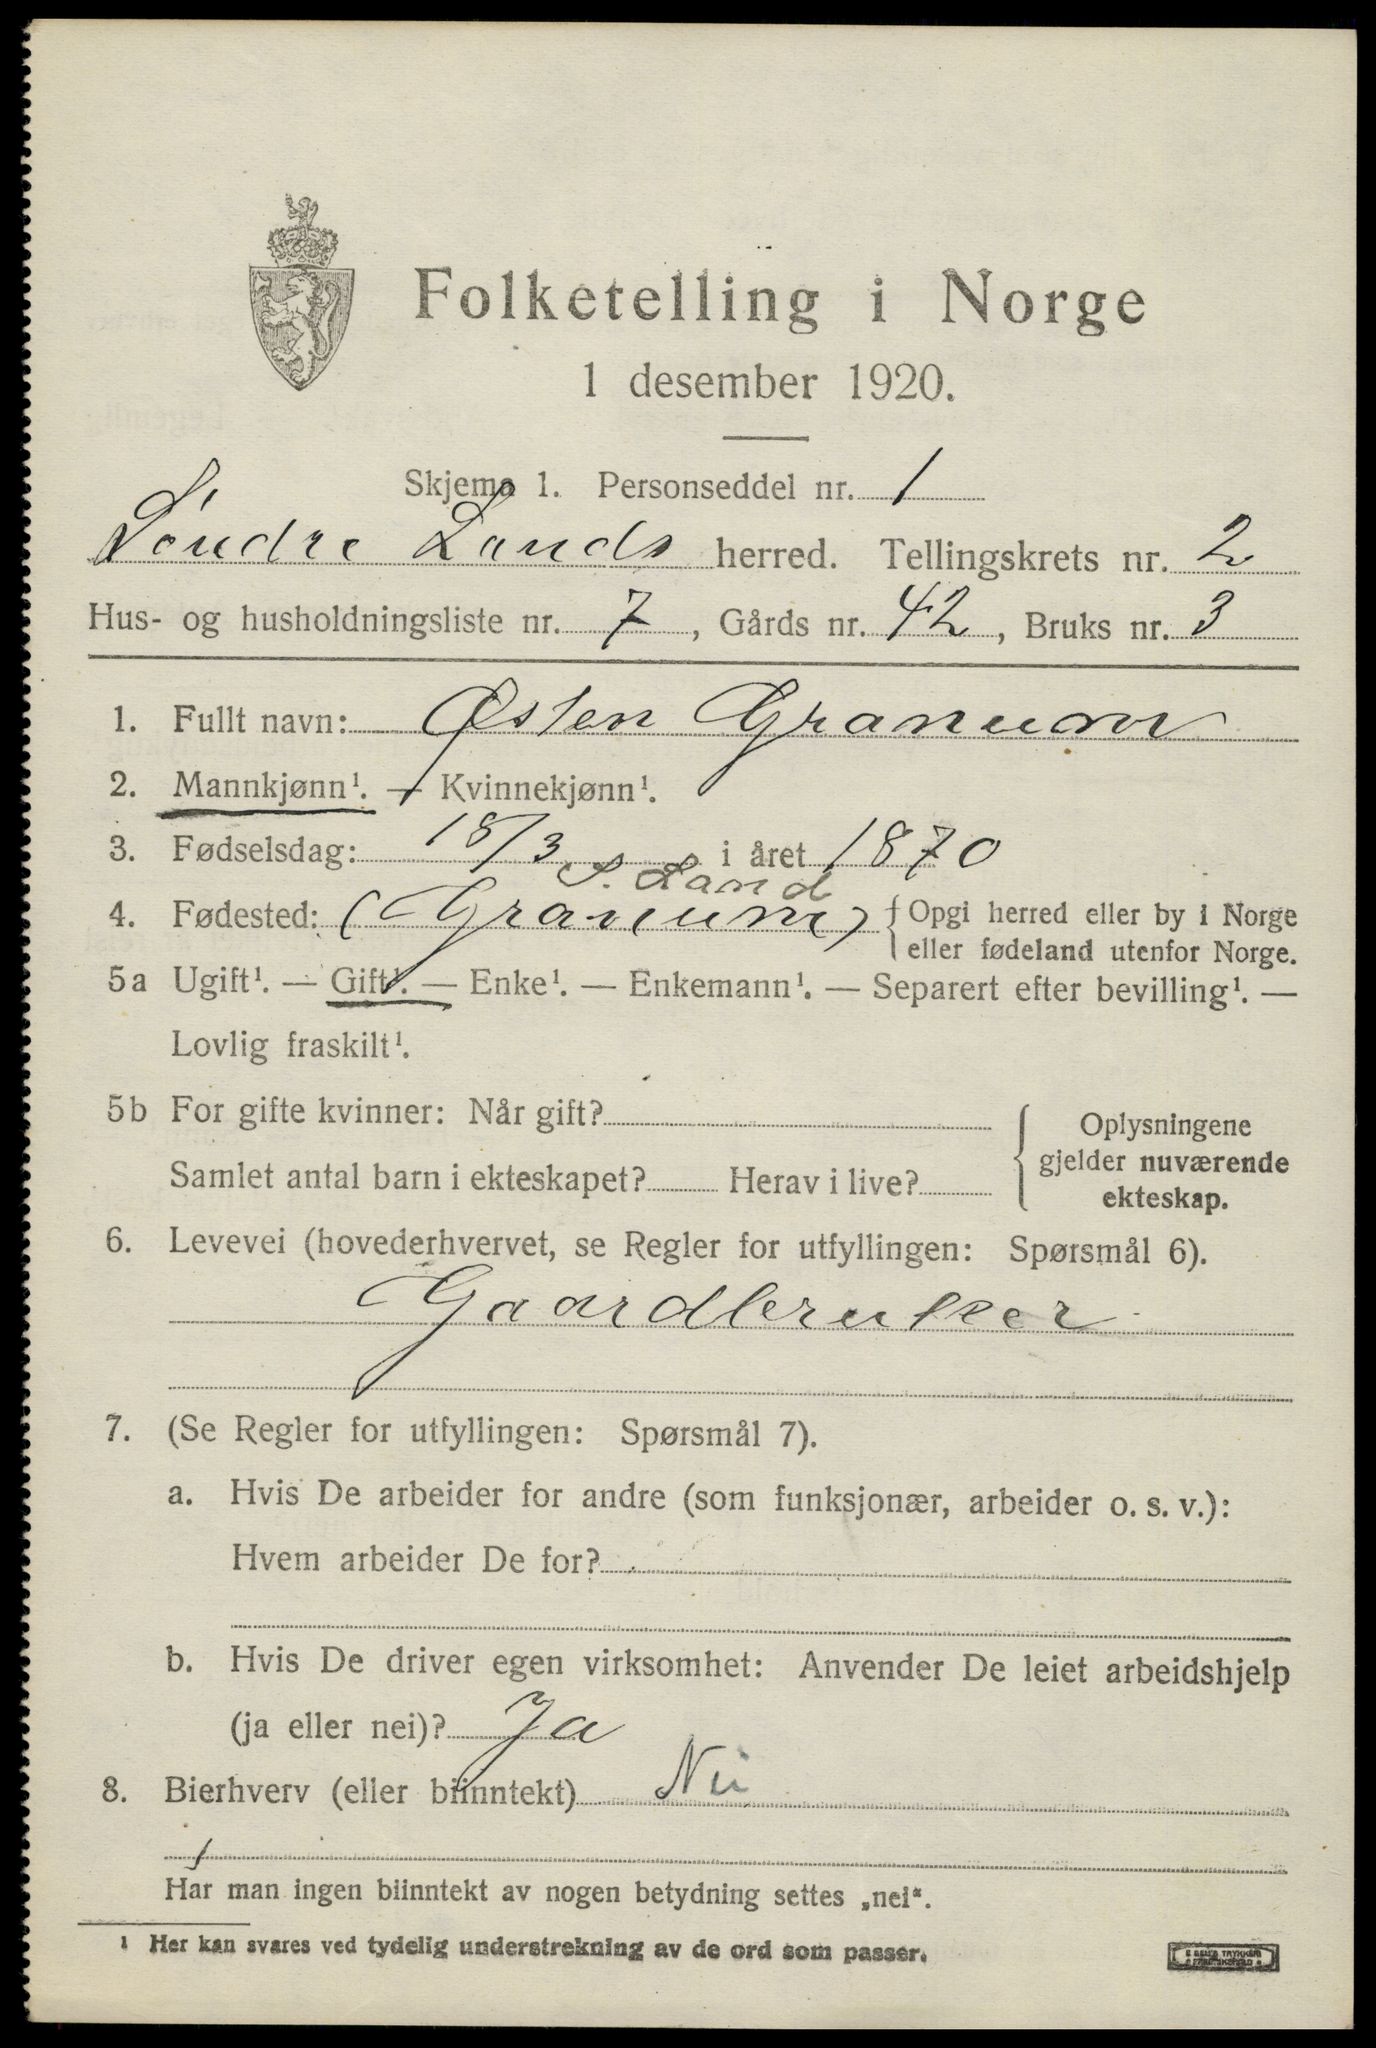 Folketelling i Norge
1 desember 1920.
Skjema 1. Personseddel nr. 1
Söndre Lands herred. Tellingskrets nr. 2
Hus- og husholdningsliste nr. 7, Gårds nr. 42, Bruks nr. 3
1. Fullt navn: Østen Granum
2. Mannkjønn¹. — Kvinnekjønn¹.
3. Fødselsdag: 18/3 i året 1870
S. Land
4. Fødested: (Granum) { Opgi herred eller by i Norge
eller fødeland utenfor Norge.
5a Ugift¹. — Gift¹. — Enke¹. — Enkemann¹. — Separert efter bevilling¹. —
Lovlig fraskilt¹.
5b For gifte kvinner: Når gift?
Samlet antal barn i ekteskapet? Herav i live?
Oplysningene
gjelder nuværende
ekteskap.
6. Levevei (hovederhvervet, se Regler for utfyllingen: Spørsmål 6).
Gaardbruker
7. (Se Regler for utfyllingen: Spørsmål 7).
a. Hvis De arbeider for andre (som funksjonær, arbeider o. s. v.):
Hvem arbeider De for?
b. Hvis De driver egen virksomhet: Anvender De leiet arbeidshjelp
(ja eller nei)? Ja
8. Bierhverv (eller biinntekt) Nei
Har man ingen biinntekt av nogen betydning settes „nei“.
¹ Her kan svares ved tydelig understrekning av de ord som passer.